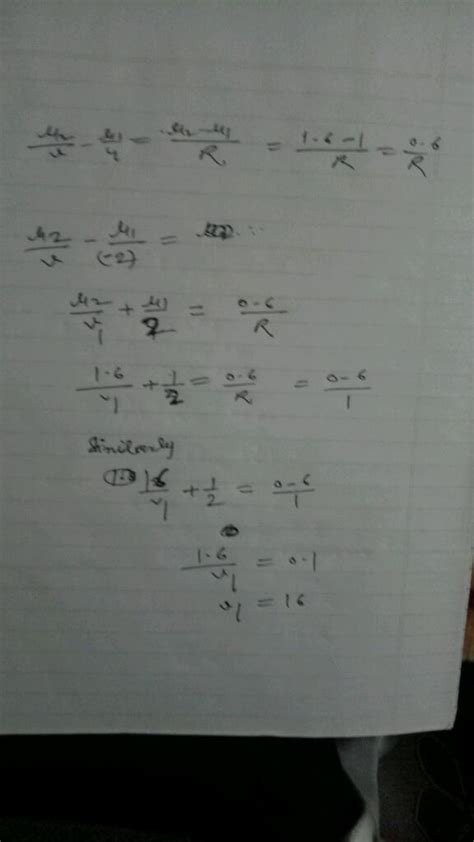 μ₂/v - μ₁/u = μ₂-μ₁/R = 1.6-1/R = 0.6/R
μ₂/v - μ₁/(-2) =
μ₂/v₁ + μ₁/2 = 0.6/R
1.6/v₁ + 1/2 = 0.6/R = 0.6/1
Similarly
1.6/v₁ + 1/2 = 0.6/1
1.6/v₁ = 0.1
v₁ = 16